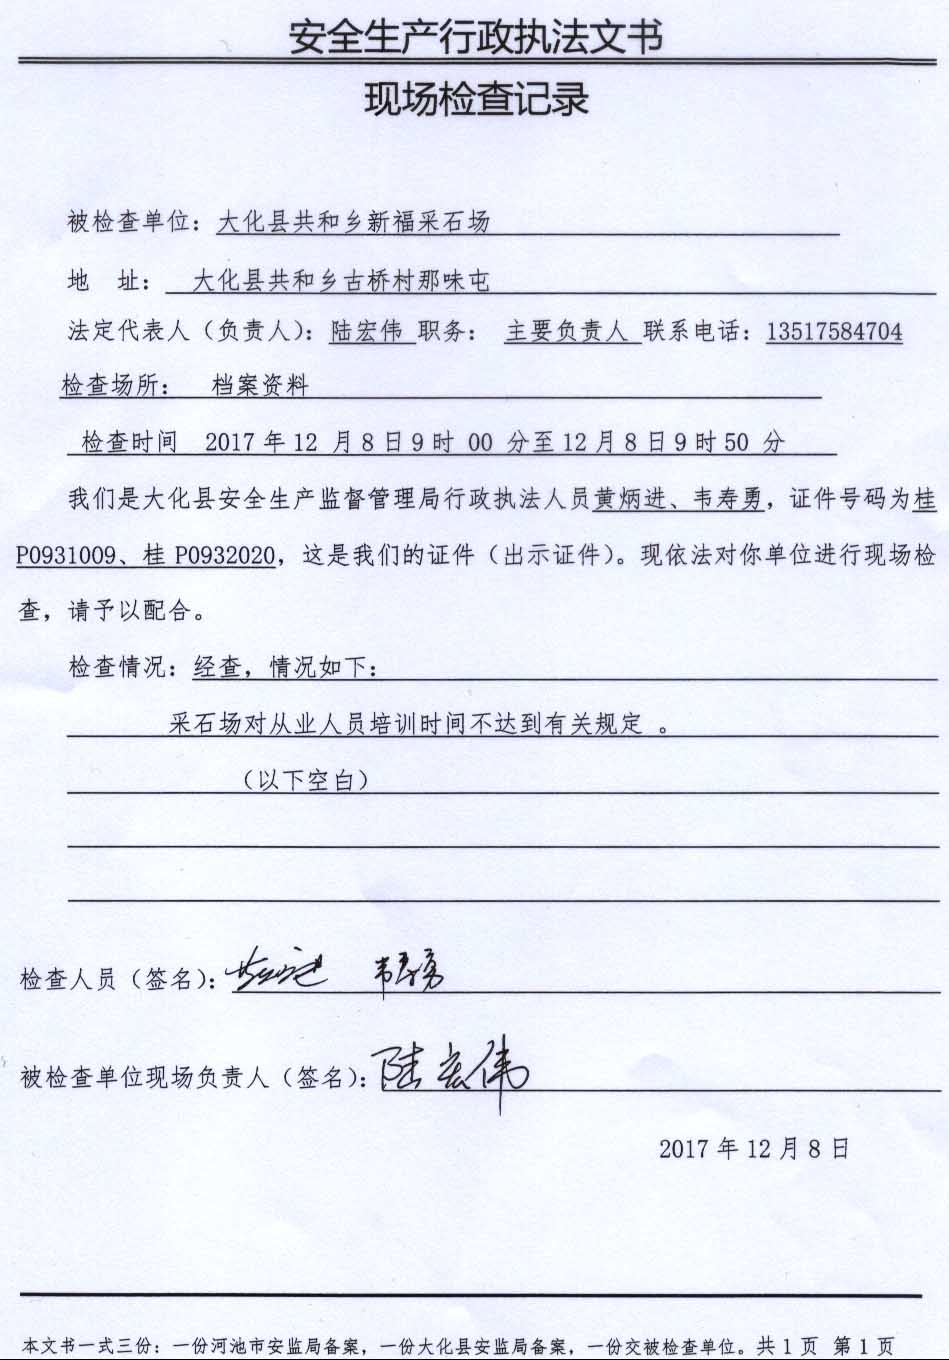 安全生产行政执法文书
现场检查记录
被检查单位：大化县共和乡新福采石场
地 址： 大化县共和乡古桥村那味屯
法定代表人（负责人）：陆宏伟 职务： 主要负责人 联系电话：13517584704
检查场所： 档案资料
检查时间 2017 年 12 月 8 日 9 时 00 分至 12 月 8 日 9 时 50 分
我们是大化县安全生产监督管理局行政执法人员黄炳进、韦寿勇，证件号码为桂
P0931009、桂 P0932020，这是我们的证件（出示证件）。现依法对你单位进行现场检
查，请予以配合。
检查情况：经查，情况如下：
采石场对从业人员培训时间不达到有关规定 。
（以下空白）
检查人员（签名）： 韦寿勇
被检查单位现场负责人（签名）：陆宏伟
2017 年 12 月 8 日
本文书一式三份：一份河池市安监局备案，一份大化县安监局备案，一份交被检查单位。共 1 页 第 1 页